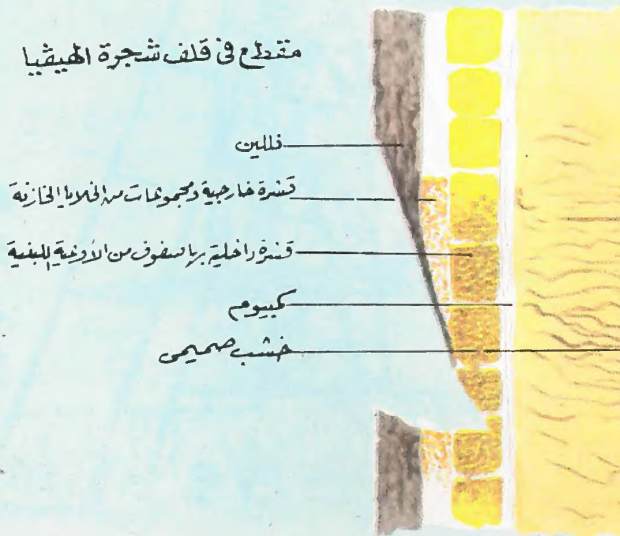 مقطع في قلف شجرة الهيڤيا
فللين
قشرة خارجية ومجموعات من الخلايا الخازنة
قشرة داخلية بها صفوف من الأوعية اللبنية
كمبيوم
خشب صميمى